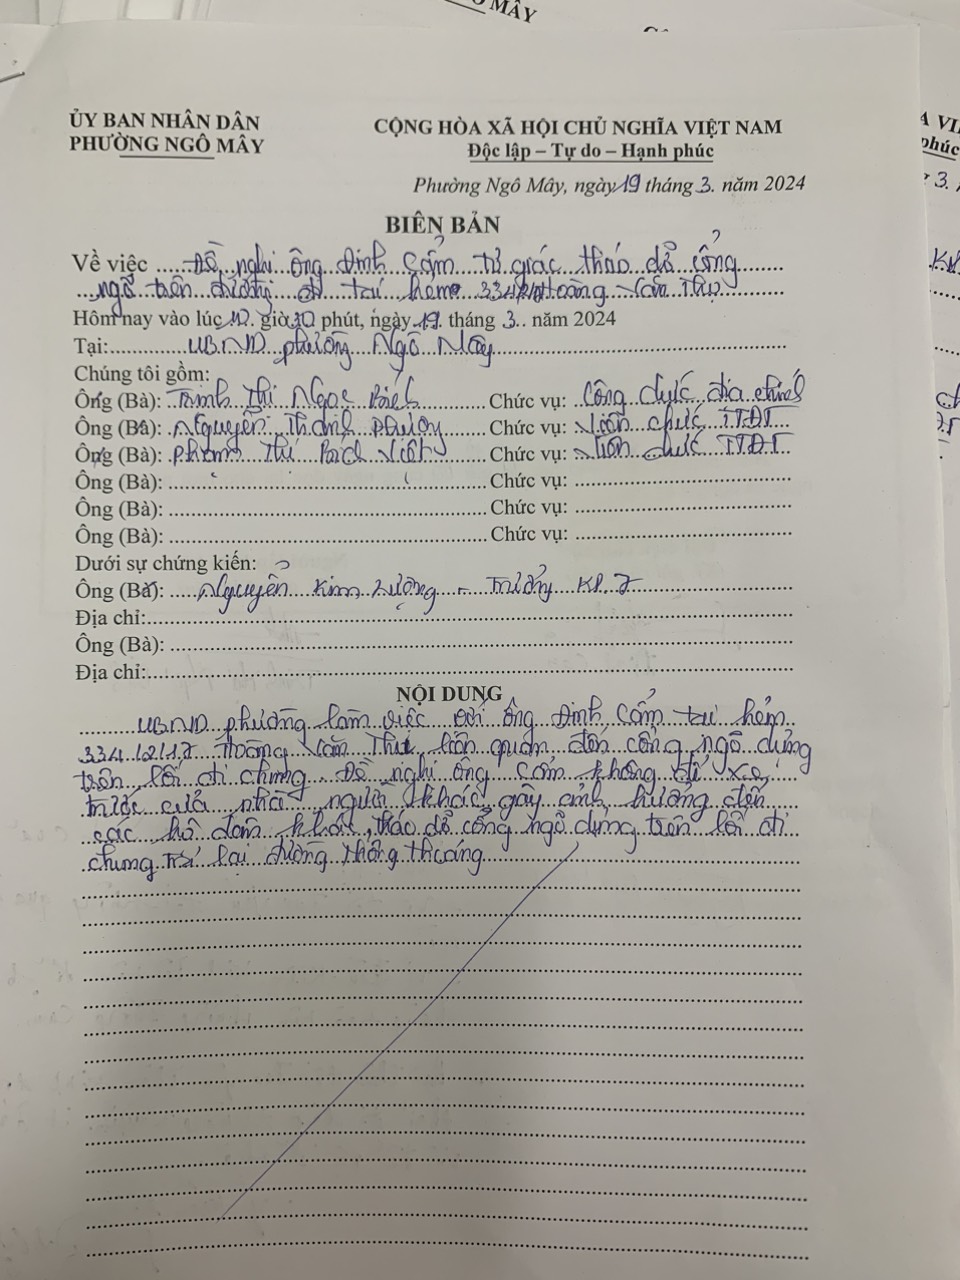 ỦY BAN NHÂN DÂN
PHƯỜNG NGÔ MÂY
CỘNG HÒA XÃ HỘI CHỦ NGHĨA VIỆT NAM
Độc lập – Tự do – Hạnh phúc
Phường Ngô Mây, ngày 19 tháng 3. năm 2024
BIÊN BẢN
Về việc ......Đề nghị ông Đinh Cẩm tự giác tháo dỡ cổng
ngõ trên đường trú hẻm 334 Hoàng Văn Thụ
Hôm nay vào lúc giờ 30 phút, ngày 19. tháng 3.. năm 2024
Tại: UBND phường Ngô Mây
Chúng tôi gồm:
Ông (Bà): Thị Ngọc Chức vụ: Công chức địa chính
Ông (Bà): Nguyễn Thành Chức vụ: Viên chức TTĐT
Ông (Bà): Phạm Thị Chức vụ: Viên chức TTĐT
Ông (Bà): Chức vụ:
Ông (Bà): Chức vụ:
Ông (Bà): Chức vụ:
Dưới sự chứng kiến:
Ông (Bà): Nguyễn Kim - Trưởng KP. 7
Địa chỉ:
Ông (Bà):
Địa chỉ:
NỘI DUNG
UBND phường làm việc với ông Đinh Cẩm trú hẻm
334/2/17 Hoàng Văn Thụ liên quan đến cổng ngõ dựng
trên lối đi chung. Đề nghị ông Cẩm không để xe
trước cửa nhà người khác gây ảnh hưởng đến
các hộ dân khác, tháo dỡ cổng ngõ dựng trên lối đi
chung trả lại đường thông thoáng